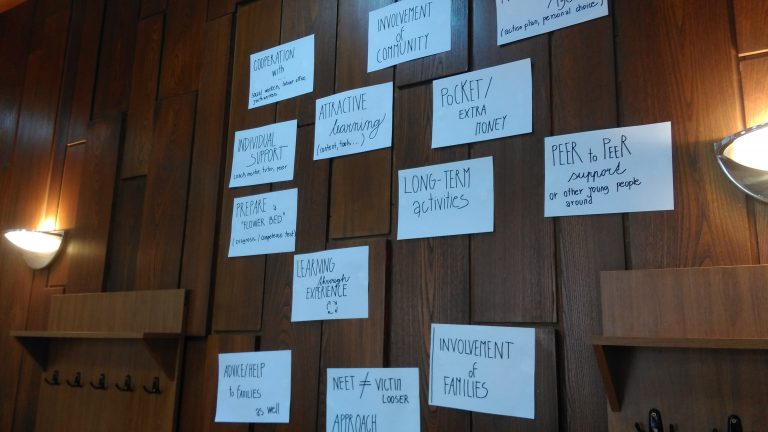 INVOLVEMENT
of
COMMUNITY
(action plan, personal choice)
COOPERATION
with ...
social workers, labour office,
POCKET/
EXTRA
MONEY
ATTRACTIVE
learning
(content, tools...)
INDIVIDUAL
SUPPORT
coach, mentor, tutor, peer
PEER to PEER
support
or other young people
around
LONG-TERM
activities
PREPARE a
"FLOWER BED"
(diagnosis / competence test)
LEARNING
through
EXPERIENCE
INVOLVEMENT
of
FAMILIES
ADVICE/HELP
to FAMILIES
as well
NEET ≠ VICTIM
LOOSER
APPROACH